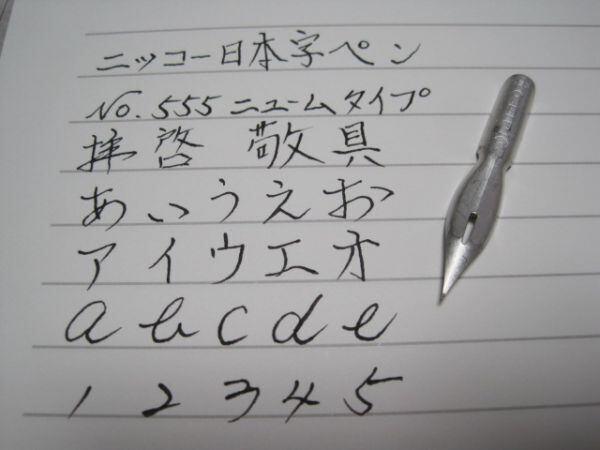 ニッコー日本字ペン
No. 555 ニュームタイプ
拝啓 敬具
あいうえお
アイウエオ
a b c d e
1 2 3 4 5